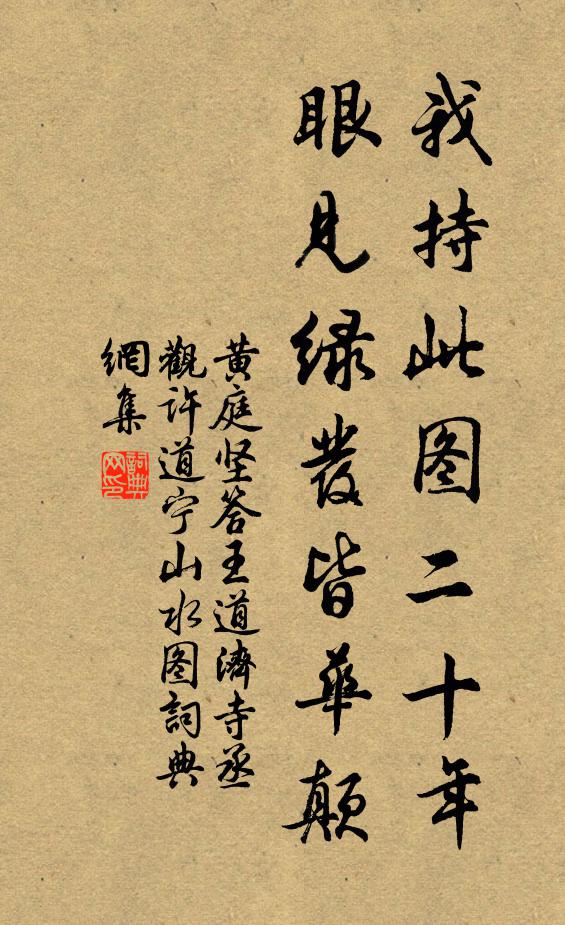 我持此图二十年
眼见绿发皆华颠
黄庭坚答王道濟寺丞
觀许道宁山水图詞典
網集
詞典网印